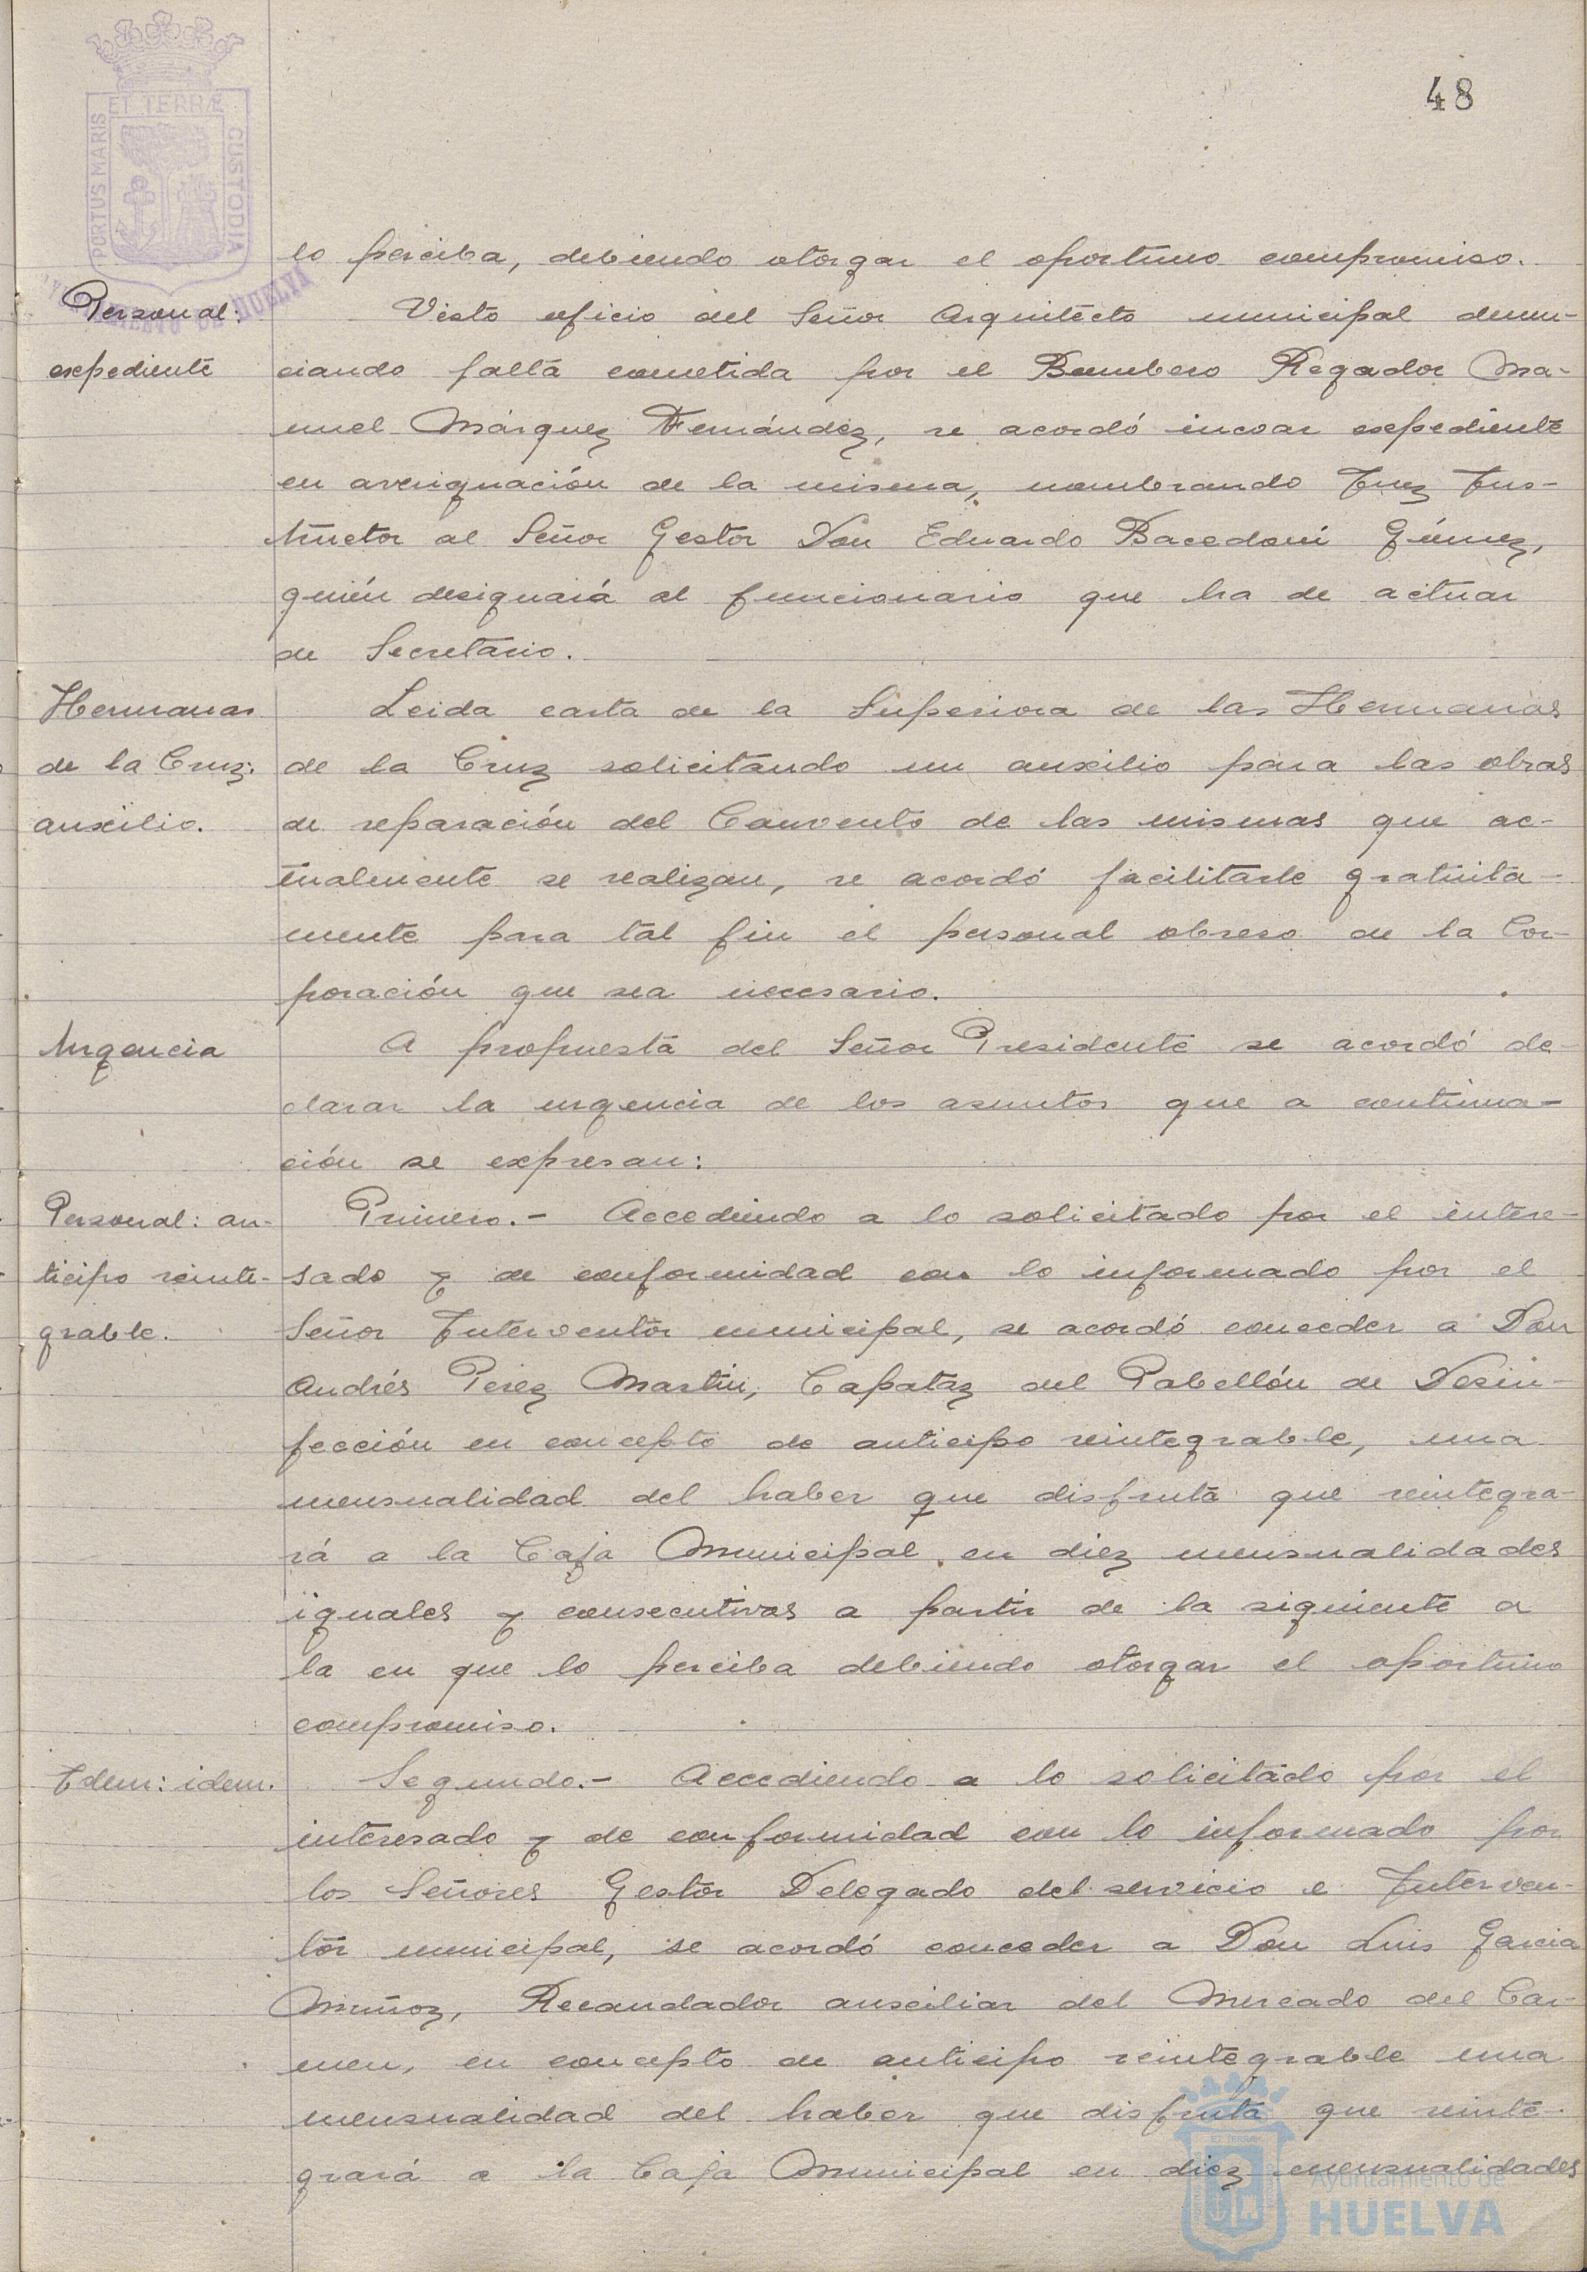 48
ET TERRÆ
PORTUS MARIS
CUSTODIA
AYUNTAMIENTO DE HUELVA
lo perciba, debiendo otorgar el oportuno compromiso.
Personal:
Visto oficio del Señor Arquitecto municipal denun-
expediente
ciando falta cometida por el Bombero Regador Ma-
nuel Márquez Fernández, se acordó incoar expediente
en averiguación de la misma, nombrando Juez Ins-
tructor al Señor Gestor Don Eduardo Bacedoni Gómez,
quién designará al funcionario que ha de actuar
de Secretario.
Hermanas
Leida carta de la Superiora de las Hermanas
de la Cruz:
de la Cruz solicitando un auxilio para las obras
auxilio.
de reparación del Convento de las mismas que ac-
tualmente se realizan, se acordó facilitarle gratuita-
mente para tal fin el personal obrero de la Cor-
poración que sea necesario.
Urgencia
A propuesta del Señor Presidente se acordó de-
clarar la urgencia de los asuntos que a continua-
ción se expresan:
Personal: an-
Primero.- Accediendo a lo solicitado por el intere-
ticipo reinte-
sado y de conformidad con lo informado por el
grable.
Señor Interventor municipal, se acordó conceder a Don
Andrés Perez Martin, Capataz del Pabellón de Desin-
fección en concepto de anticipo reintegrable, una
mensualidad del haber que disfruta que reintegra-
rá a la Caja Municipal en diez mensualidades
iguales y consecutivas a partir de la siguiente a
la en que lo perciba debiendo otorgar el oportuno
compromiso.
Idem: idem.
Segundo.- Accediendo a lo solicitado por el
interesado y de conformidad con lo informado por
los Señores Gestor Delegado del servicio e Interven-
tor municipal, se acordó conceder a Don Luis Garcia
Muñoz, Recaudador auxiliar del Mercado del Car-
men, en concepto de anticipo reintegrable una
mensualidad del haber que disfruta que reinte-
grará a la Caja Municipal en diez mensualidades
Ayuntamiento de
HUELVA